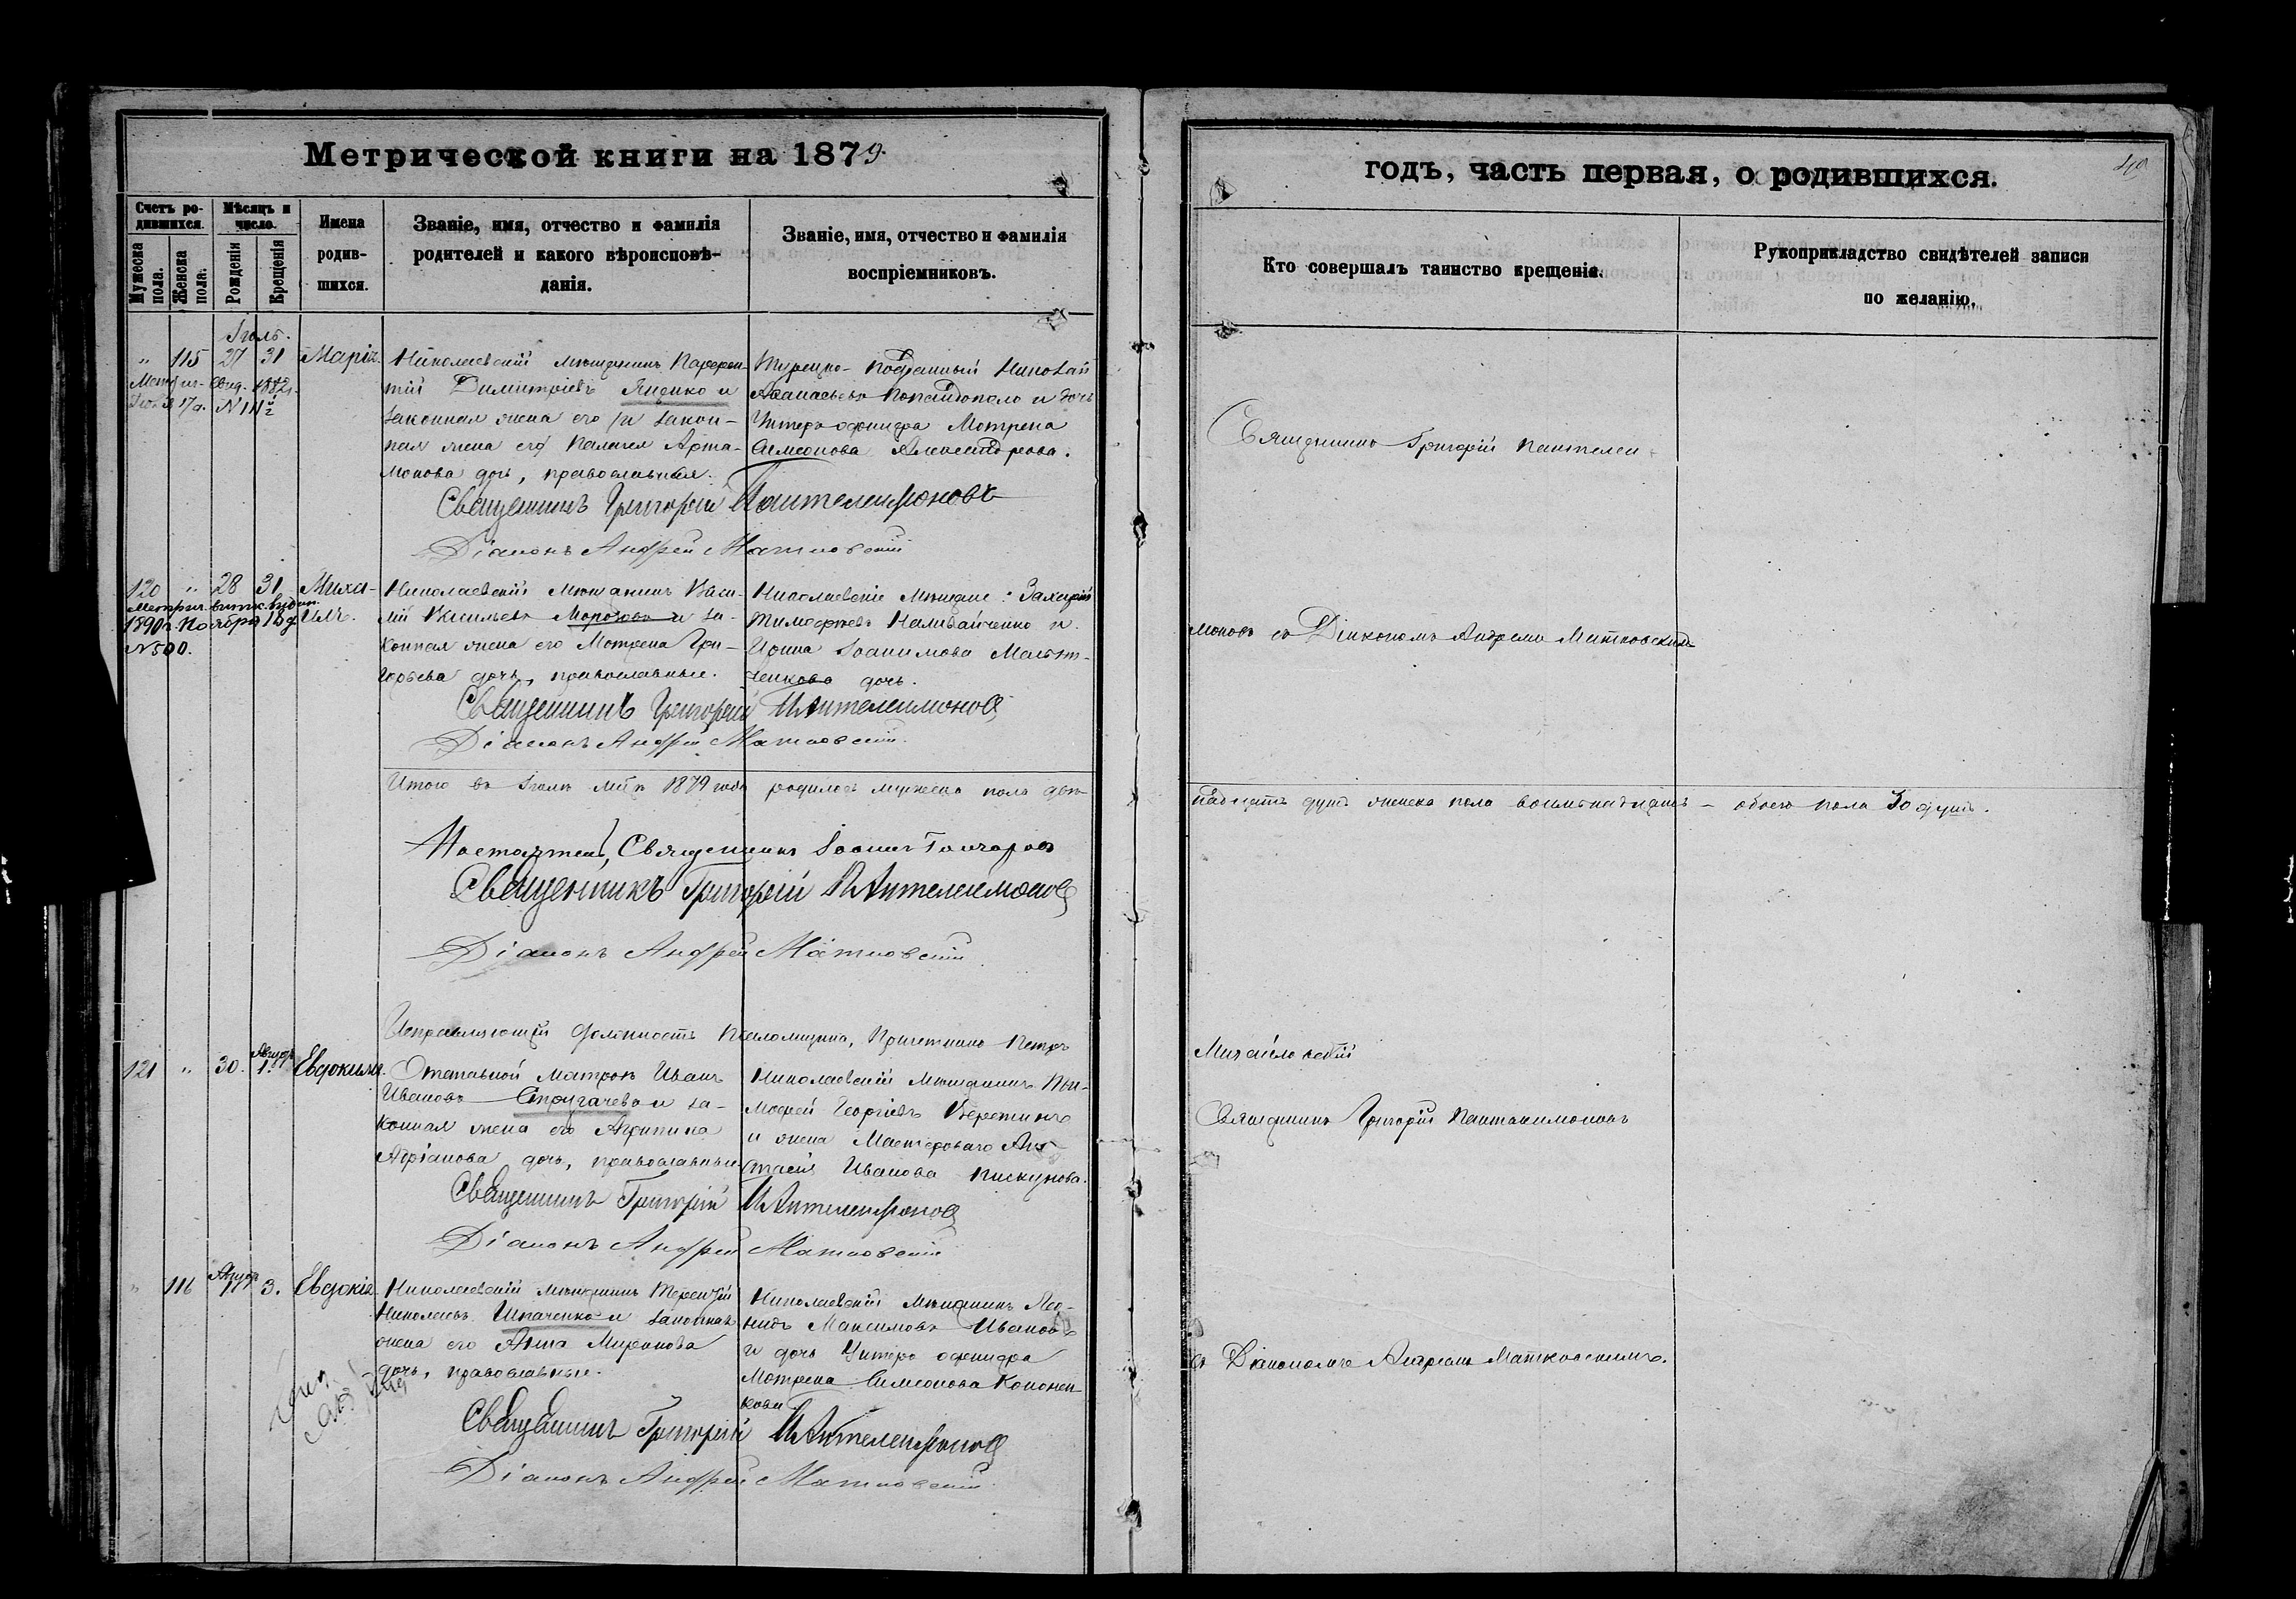 Метрической книги на 1879.
годъ, часть первая, о родившихся.
Счетъ ро-
дившихся.
Мужеска пола.
Женска пола.
Мѣсяцъ и
число.
Рожденія
Крещенія
Имена
родив-
шихся.
Званіе, имя, отчество и фамилія
родителей и какого вѣроисповѣ-
данія.
Званіе, имя, отчество и фамилія
воспріемниковъ.
Кто совершалъ таинство крещенія.
Рукоприкладство свидѣтелей записи
по желанію.
Іюль.
" 115 27 31 Марія.
Николаевскій мѣщанинъ Парфен-
тій Димитріевъ Яценко и
законная жена его (и закон-
ная жена его) Пелагея Арта-
монова дочь, православная.
Турецко-подданный Николай
Афанасьевъ Попандопало и дочь
Унтеръ-офицера Мотрена
Симеонова Александрова.
Священникъ Григорій Пантелеимоновъ
Діаконъ Андрей Матковскій
Священникъ Григорій Пантелеи-
120 " 28 31 Миха-
илъ.
Метрич. выпись выдан.
1890 г. Ноября 18 д.
№ 500.
Николаевскій мѣщанинъ Васи-
лій Васильевъ Морозовъ и за-
конная жена его Мотрена Гри-
горьева дочь, православные.
Николаевскіе Мѣщане: Захарій
Тимофеевъ Наливайченко и
Ирина Іоакимова
дочь.
Священникъ Григорій Пантелеимоновъ
Діаконъ Андрей Матковскій.
моновъ съ Діакономъ Андреемъ Матковскимъ
Итого въ Іюлѣ м-цѣ 1879 года родилось мужеска пола двѣ-
надцать душъ женска пола восемнадцать – обоего пола 30 душъ.
Настоятель, Священникъ Іоаннъ Гончаровъ
Священникъ Григорій Пантелеимоновъ
Діаконъ Андрей Матковскій
Исправляющій должность Псаломщика, Причетникъ Петръ
Михайловскій
121 " 30. Августъ 1. Евдокимъ.
Отставной Матросъ Иванъ
Ивановъ Стругачевъ и за-
конная жена его Агрипина
Адріанова дочь, православные
Николаевскій Мѣщанинъ
Георгіевъ Веретинъ
и жена Мастероваго Ана-
стасія Иванова Пискунова.
Священникъ Григорій Пантелеимоновъ
Діаконъ Андрей Матковскій
Священникъ Григорій Пантелеимоновъ
" 116 Августъ 1 3. Евдокія.
Николаевскій мѣщанинъ Терентій
Николаевъ Шпаченко и законная
жена его Анна Миронова
дочь, православные.
Николаевскій Мѣщанинъ Лео-
нидъ Максимовъ Ивановъ
и дочь Унтеръ офицера
Мотрена Симеонова Кононен-
кова
Священникъ Григорій Пантелеимоновъ
Діаконъ Андрей Матковскій.
съ Діакономъ Андреемъ Матковскимъ.